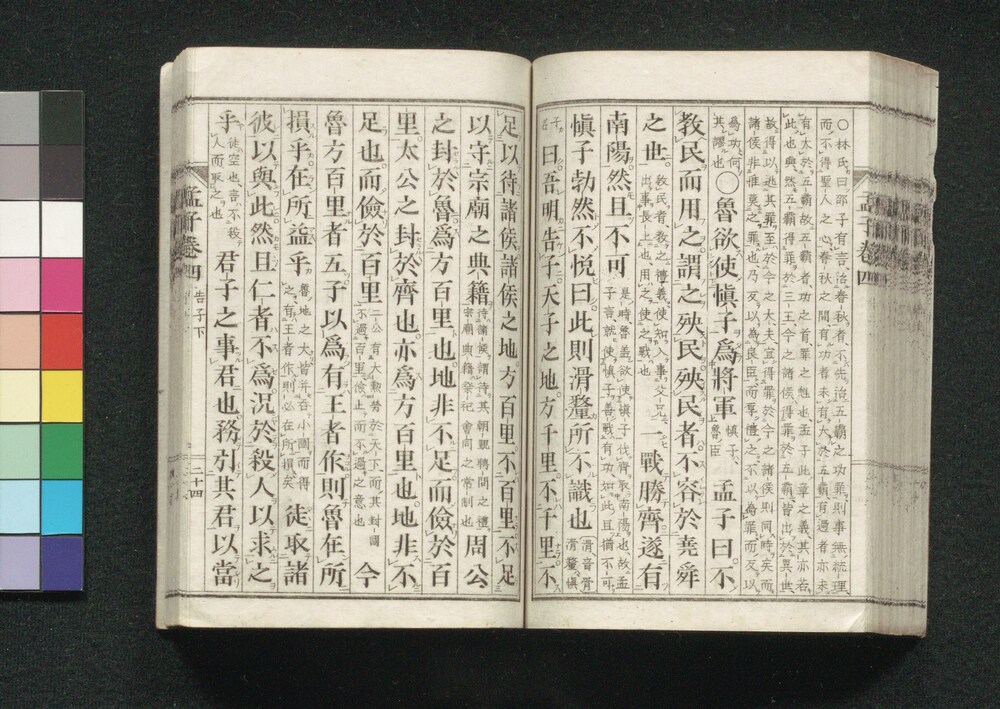 孟子卷四
○林氏曰邵子有言治春秋者不先治五霸之功罪則事無統理
而不得聖人之心春秋之間有功者未有大於五霸有過者亦未
有大於五霸故五霸者功之首罪之魁也孟子此章之義其亦若
此也與然五霸得罪於三王今之諸侯得罪於五霸皆出於異世
故得以逃其罪至於今之大夫宜得罪於今之諸侯則同時矣而
諸侯非惟莫之罪也乃反以為良臣而厚禮之不以為罪而反以
為功何
其謬也○魯欲使慎子為將軍慎子魯臣孟子曰不
教民而用之謂之殃民殃民者不容於堯舜
之世教民者教之禮義使知入事父兄出事長上也用之使之戰也一戰勝齊遂有
南陽然且不可是時魯蓋欲使慎子伐齊取南陽也故孟子言就使慎子善戰有功如此且猶不可
慎子勃然不悅曰此則滑釐所不識也滑音骨滑釐慎
子名曰吾明告子天子之地方千里不千里不
足以待諸侯諸侯之地方百里不百里不足
以守宗廟之典籍待諸侯謂待其朝覲聘問之禮宗廟典籍祭祀會同之常制也周公
之封於魯為方百里也地非不足而儉於百
里太公之封於齊也亦為方百里也地非不
足也而儉於百里二公有大勳勞於天下而其封國不過百里儉止而不過之意也今
魯方百里者五子以為有王者作則魯在所
損乎在所益乎魯地之大皆并吞小國而得之有王者作則必在所損矣徒取諸
彼以與此然且仁者不為況於殺人以求之
乎徒空也言不殺人而取之也君子之事君也務引其君以當
孟子卷四
告子下
二十四